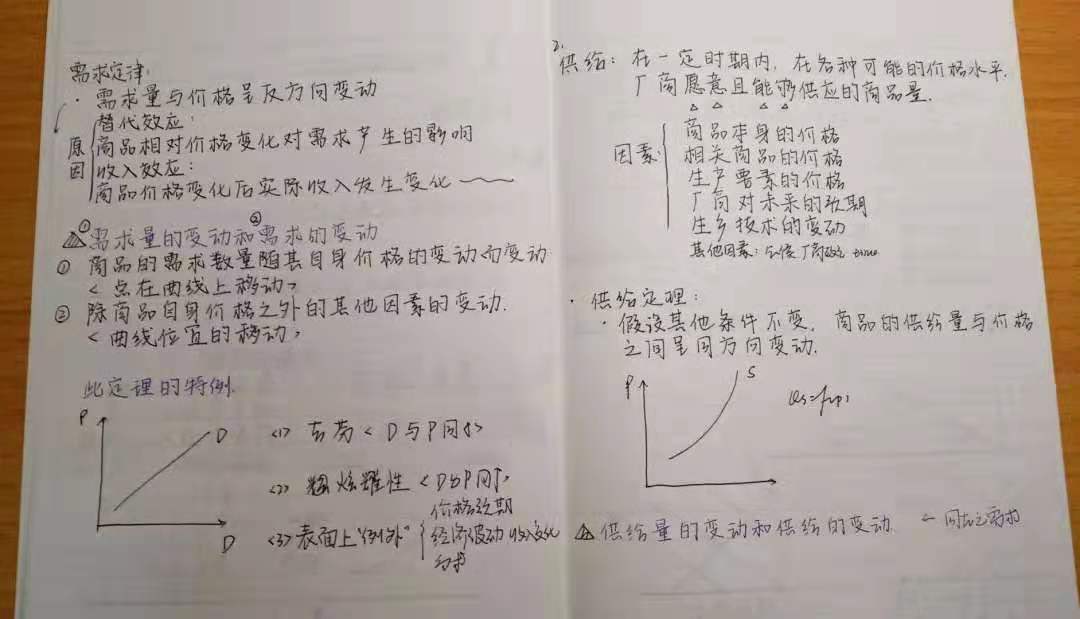 需求定律:
· 需求量与价格呈反方向变动
原因
替代效应:
商品相对价格变化对需求产生的影响
收入效应:
商品价格变化后实际收入发生变化
① ②
需求量的变动和需求的变动
① 商品的需求数量随其自身价格的变动而变动
<点在曲线上移动>
② 除商品自身价格之外的其他因素的变动.
<曲线位置的移动>
此定理的特例.
P
D
D
<1> 吉芬 < D与P同↑>
<2> 炫耀性 < D与P同↑>
<3> 表面上"例外"
价格预期
经济波动 收入变化
2.
供给: 在一定时期内, 在各种可能的价格水平.
厂商愿意且能够供应的商品量.
因素:
商品本身的价格
相关商品的价格
生产要素的价格
厂商对未来的预期
生产技术的变动
其他因素:
· 供给定理:
· 假设其他条件不变, 商品的供给量与价格
之间呈同方向变动.
P
S
供给量的变动和供给的变动.